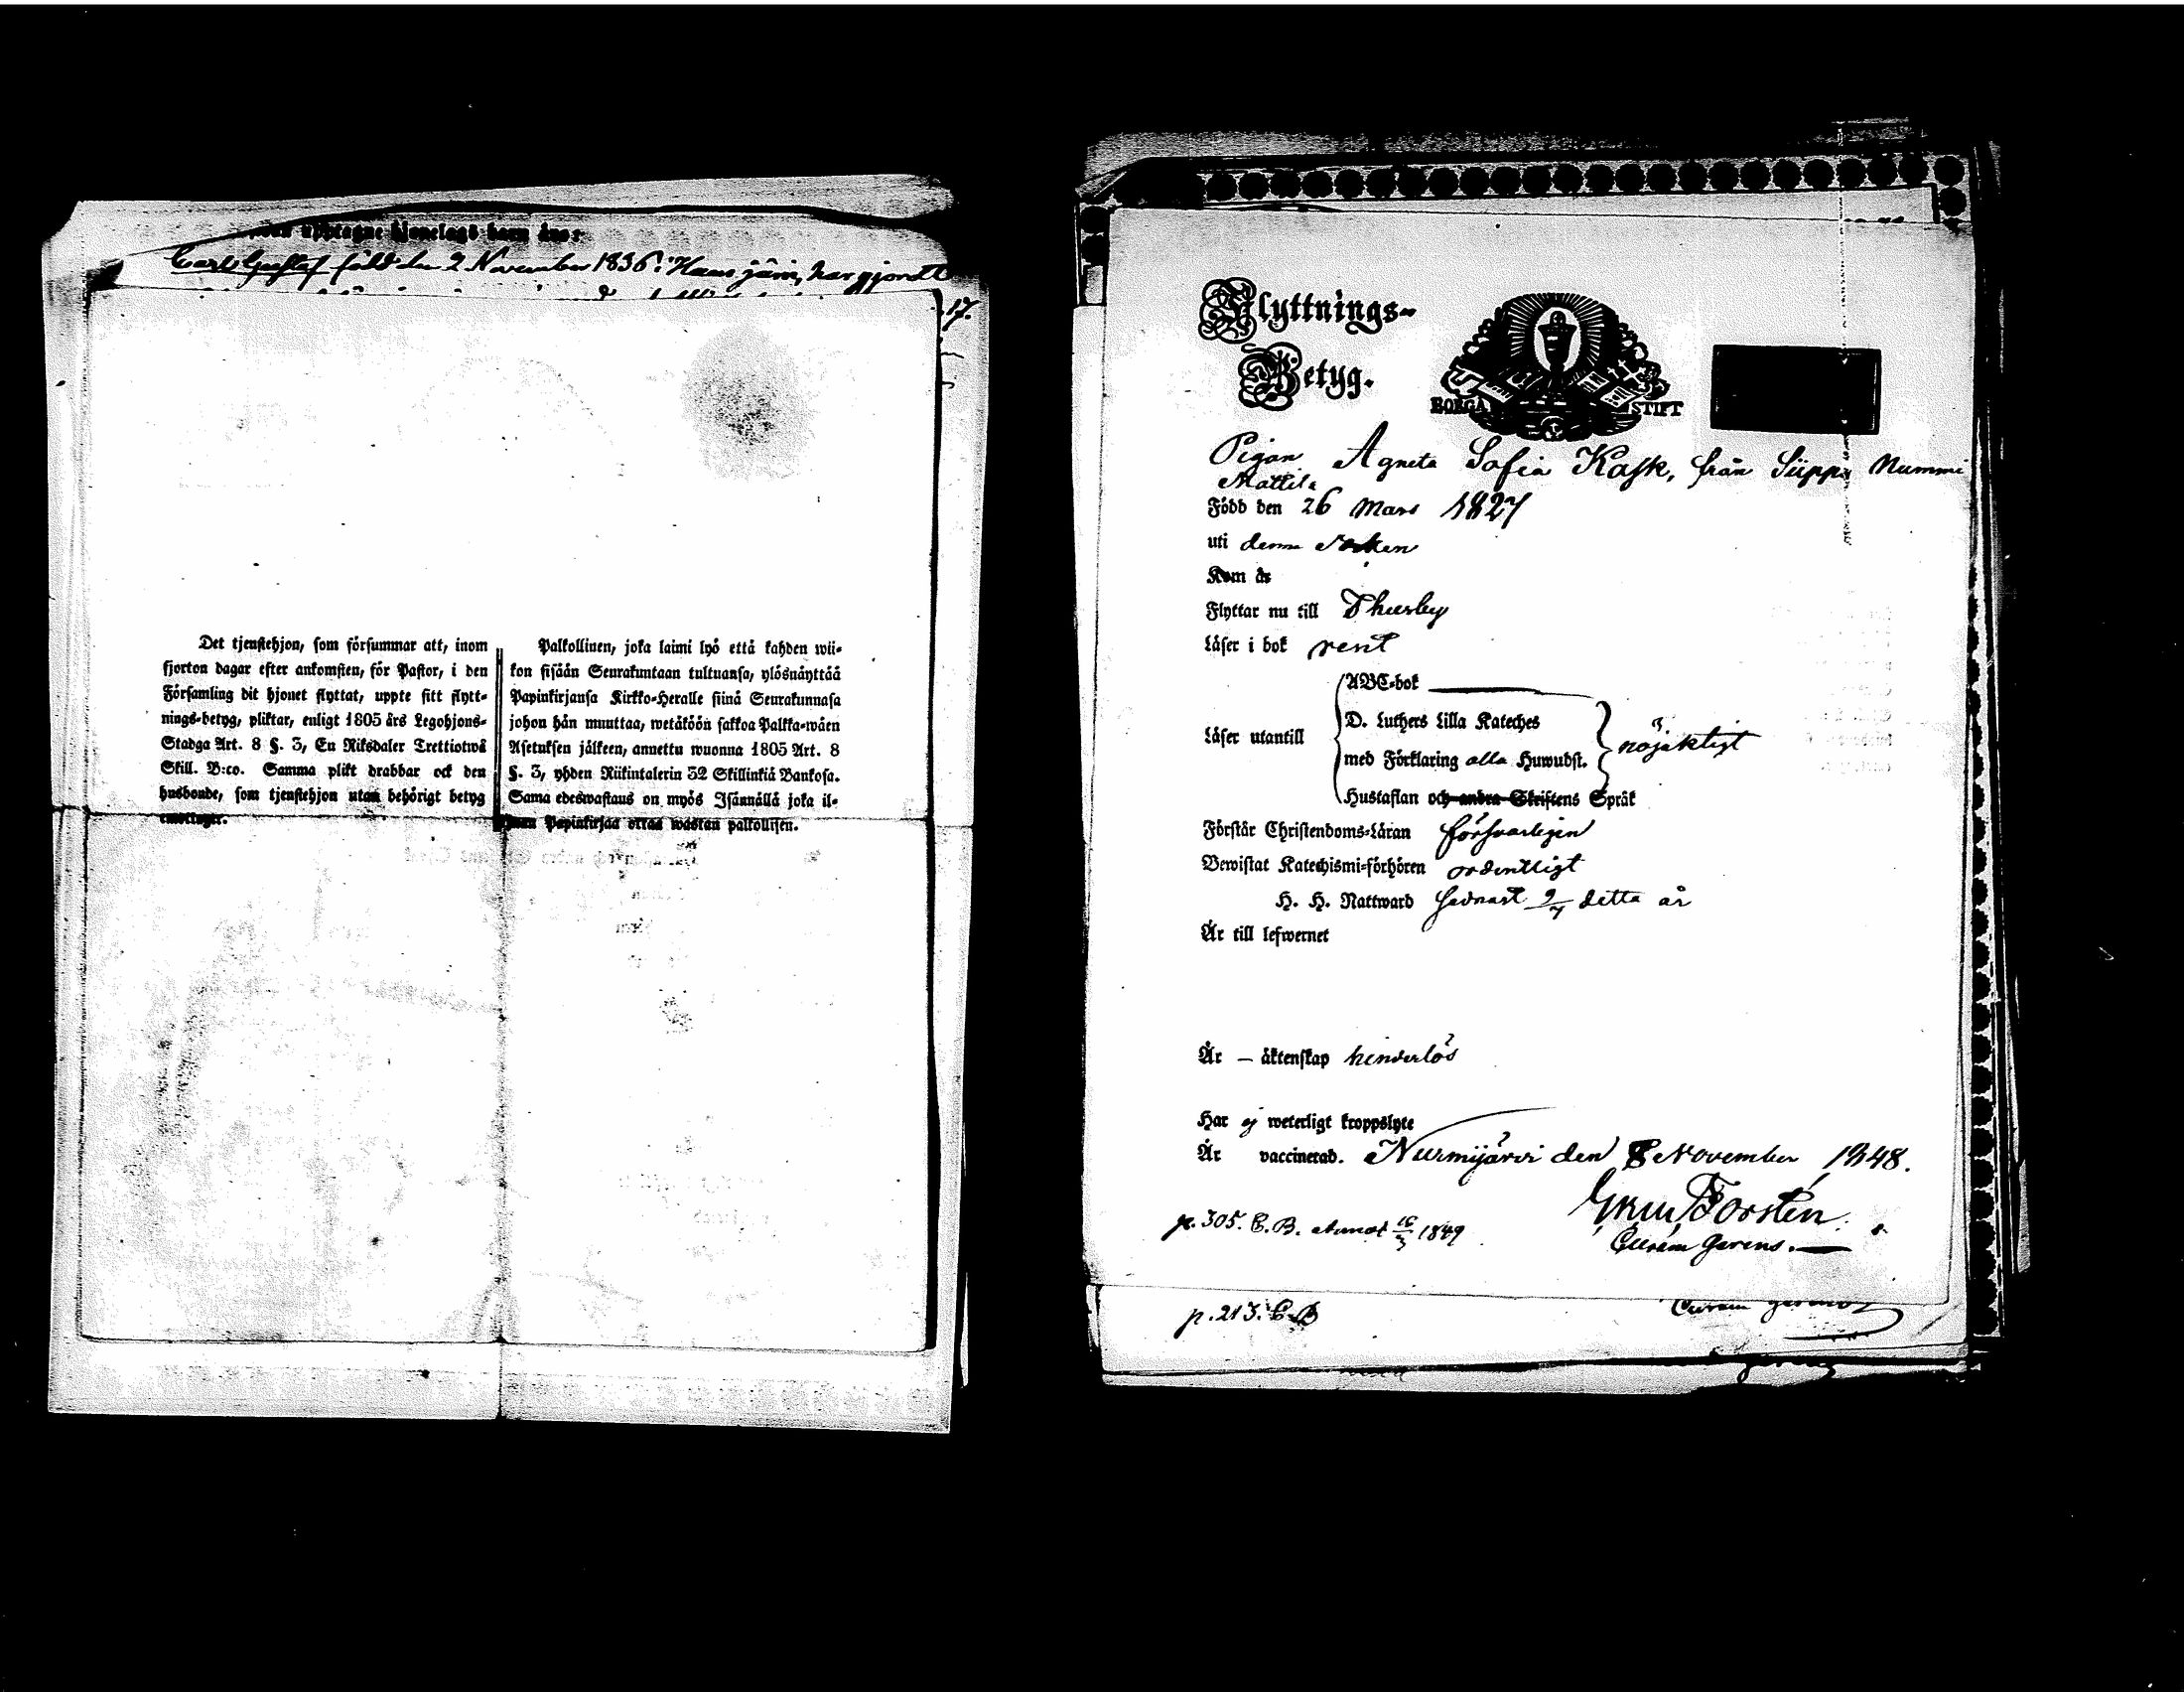 upptagne
Carl Gustaf född den 2 November 1836. Hans
17.
Det tjenstehjon, som försummar att, inom
fjorton dagar efter ankomsten, för Pastor, i den
Församling dit hjonet flyttat, uppte sitt flytt-
nings-betyg, pliktar, enligt 1805 års Legohjons-
Stadga Art. 8 §. 3, En Riksdaler Trettiotwå
Skill. B:co. Samma plikt drabbar ock den
husbonde, som tjenstehjon utan behörigt betyg
emottager.
Palkollinen, joka laimi lyö että kahden wii-
kon sisään Seurakuntaan tultuansa, ylösnäyttää
Papinkirjansa Kirkko-Heralle siinä Seurakunnasa
johon hän muuttaa, wetäköön sakkoa Palkka-wäen
Asetuksen jälkeen, annettu wuonna 1805 Art. 8
§. 3, yhden Riikintalerin 32 Skillinkiä Bankosa.
Sama edeswastaus on myös Isännällä joka il-
man Papinkirjaa ottaa wastan palkollisen.
Flyttnings-
Betyg.
BORGÅ STIFT
Pigan Agneta Sofia Kask, från Nummi
Mattila
Född den 26 Mars 1827
uti denna Socken
Kom år
Flyttar nu till Thusby
Läser i bok rent
Läser utantill
ABC-bok
D. Luthers Lilla Kateches
med Förklaring alla Huwudst.
Hustaflan och andra Skriftens Språk
nöjaktigt
Förstår Christendoms-Läran försvarligen
Bewistat Katechismi-förhören ordentligt
H. H. Nattward sednast 9/7 detta år
Är till lefwernet
Är – äktenskap hinderlös
Har ej weterligt kroppslyte
Är vaccinerad. Nurmijärvi den 8 November 1848.
Forstén
p. 305. C. B. 16/3 1849
Curam Gerens.
p. 213. C. B
Curam gerens